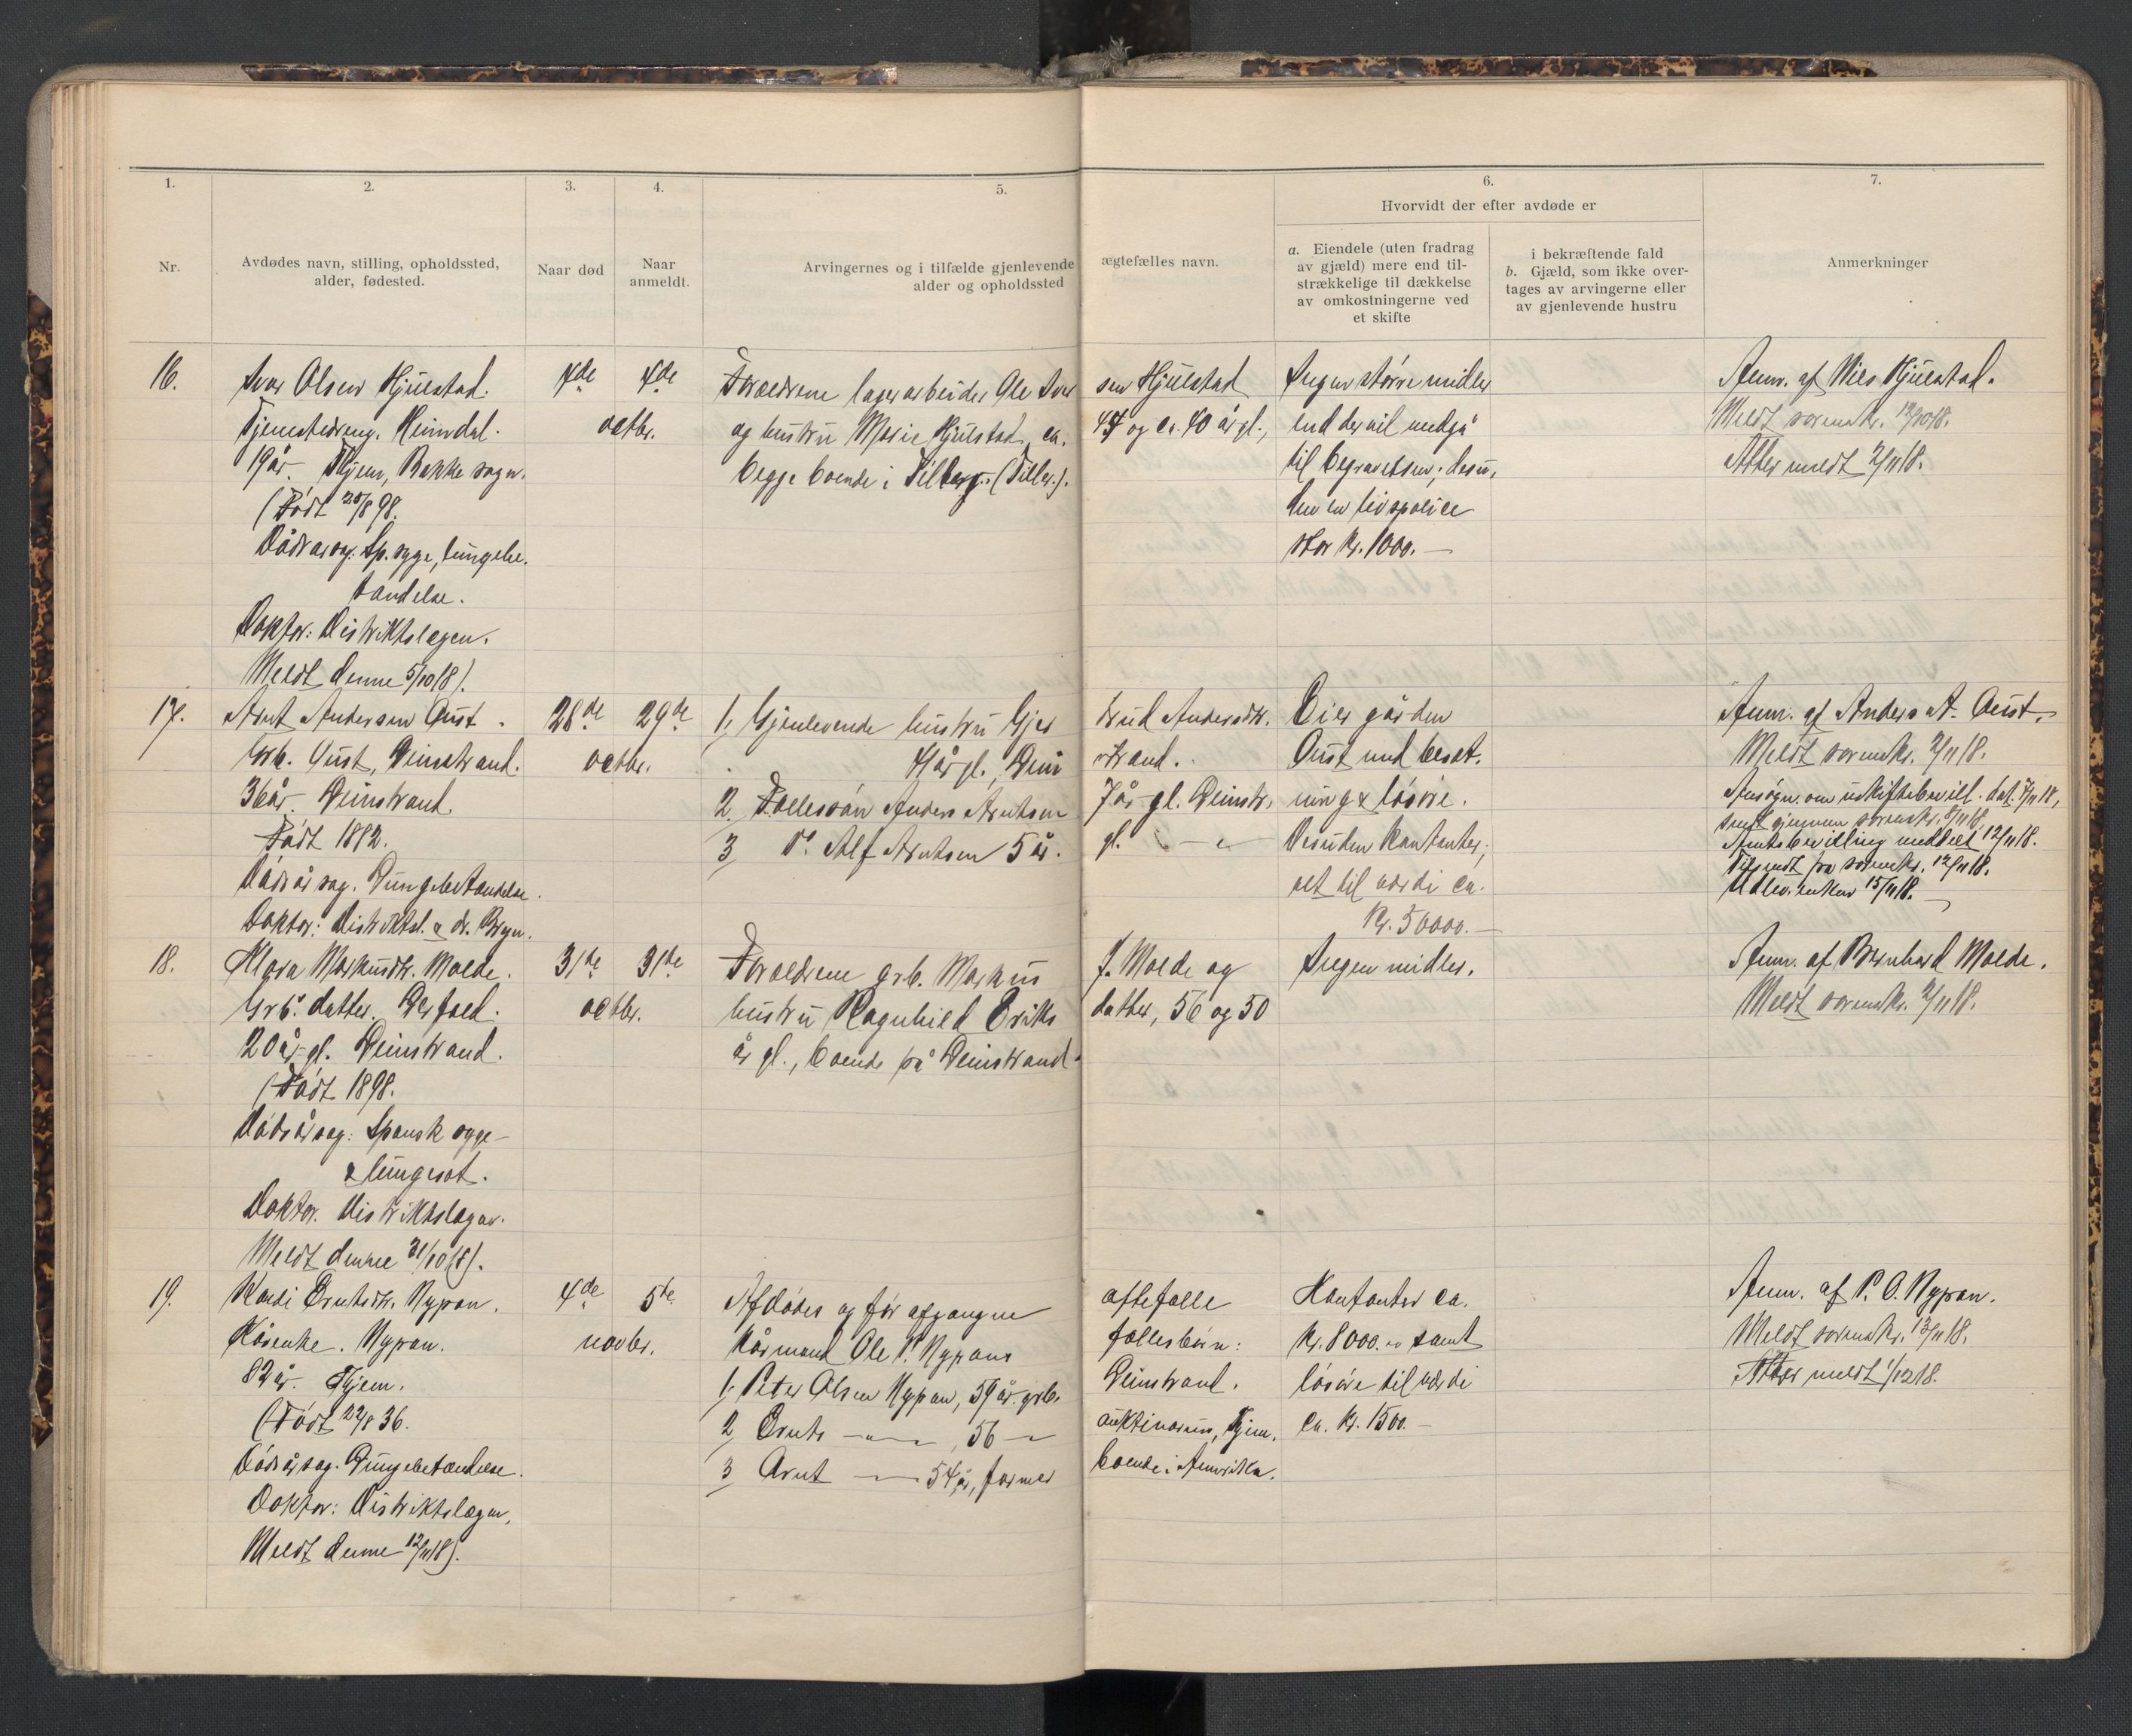 1.
2.
3.
4.
5.
6.
7.
Nr.
Avdødes navn, stilling, opholdssted,
alder, fødested.
Naar død
Naar
anmeldt.
Arvingernes og i tilfælde gjenlevende
alder og opholdssted
ægtefælles navn.
Hvorvidt der efter avdøde er
a. Eiendele (uten fradrag
av gjæld) mere end til-
strækkelige til dækkelse
av omkostningerne ved
et skifte
i bekræftende fald
b. Gjæld, som ikke over-
tages av arvingerne eller
av gjenlevende hustru
Anmerkninger
16.
Ivar Olsen Hjulstad.
Tjenestedreng. Heimdal.
19 år. Hjem, Bakke sogn.
(Født 20/8 98.
Dødsårsag: Sp. syge, lungebe-
tændelse.
Doktor: Distriktslægen.
Meldt denne 5/10 18).
4de
4de
octbr.
Forældrene lagerarbeider Ole Ivar
og hustru Marie Hjulstad, ca.
begge boende i (Tiller).
sen Hjulstad
44 og ca. 40 år gl.,
Ingen større midler
end der vil medgå
til begravelsen; desu-
den en livspolice
stor kr. 1000.—
Anm. af Nils Hjulstad.
Meldt sorenskr. 12/10 18.
Atter meldt 2/11 18.
17.
Arnt Andersen Aust.
Grb. Aust, Leinstrand.
36 år. Leinstrand.
Født 1882.
Dødsårsag. Lungebetændelse.
Doktor: Distriktsl. & dr. Bryn.
28de
29de
octbr.
1, Gjenlevende hustru Gjer
41 år gl., Lein
2, Fællessøn Anders Arntsen
3, Do. Alf Arntsen 5 år.
trud Andersdtr.
strand.
7 år gl. Leinstr.
gl. — " —
Eier gården
Aust med besæt-
ning & løsøre.
Desuden kontanter;
alt til værdi ca.
Kr. 50000.—
Anm. af Anders A. Aust.
Meldt sorenskr. 2/11 18.
Ansøgn. om uskiftebevill. dat. 7/11 18,
sendt gjennem sorenskr. 8/11 18.
Amtsbevilling meddelt 12/11 18.
Tilsendt fra sorenskr. 12/11 18.
Udlev. enken 15/11 18.—
18.
Klara Markusdtr. Molde.
Grb. datter.
20 år gl. Leinstrand.
(Født 1898.
Dødsårsag: Spansk syge—
& lungesot.
Doktor. Distriktslægen.
Meldt denne 31/10 18).
31de
31de
octbr.
Forældrene grb. Markus
hustru Ragnhild Eriks
år gl., boende på Leinstrand.
J. Molde og
datter, 56 og 50
Ingen midler.
Anm. af Bernhard Molde.
Meldt sorenskr. 2/11 18.
19.
Kari Erntsdtr. Nypan.
Kårenke. Nypan.
82 år. Hjem.
(Født 22/8 36.
Dødsårsag. Lungebetændelse.
Doktor: Distriktslægen,
Meldt denne 12/11 18).
4de
5te
novbr.
Afdødes og før afgangne
kårmand Ole P. Nypans
1, Peter Olsen Nypan, 59 år. grb.
2, Ernts — " — , 56 — "
3, Arnt — " — 54 år, farmer
ægtefælle
fællesbørn:
Leinstrand.
Hjem.
boende i Amerika.
Kontanter ca.
Kr. 8000.— samt
løsøre til værdi
ca. kr. 1500.—
Anm. af P. O. Nypan.
Meldt sorenskr. 13/11 18.
Atter meldt 1/12 18.